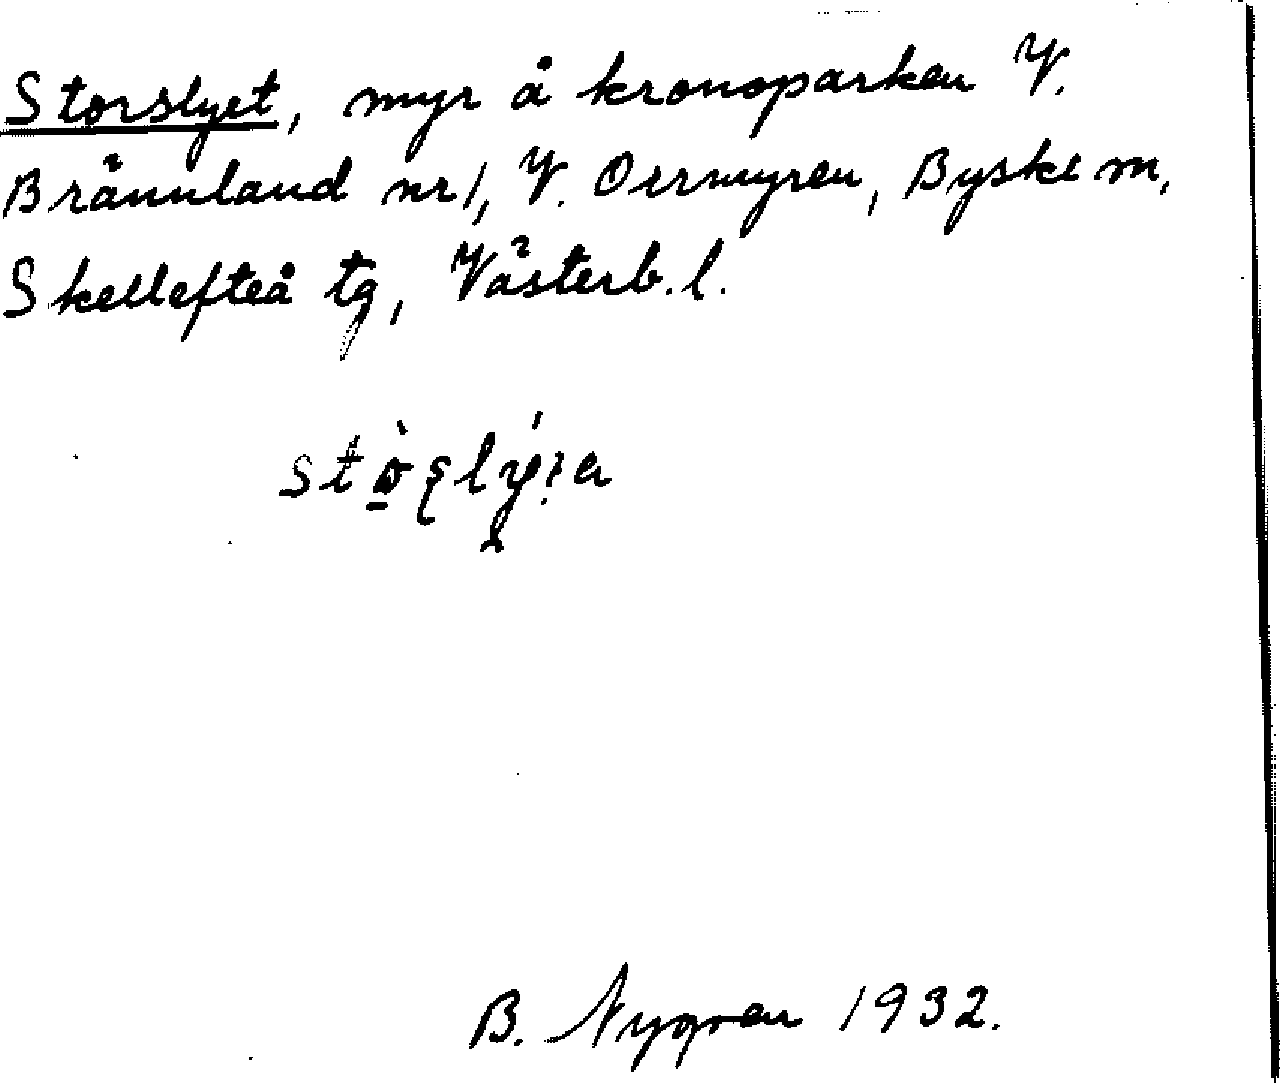 Storslyet, myr å kronoparken V.
Brännland nr 1, V. Ormyren, Byske m,
Skellefteå tg, Västerb. l.
B. Nygren 1932.